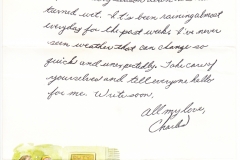 turned wet. It's been raining almost
everyday for the past week. I've never
seen weather that can change so
quick and unexpectedly. Take care of
yourselves and tell everyone hello
for me. Write soon.
All my love,
Charles